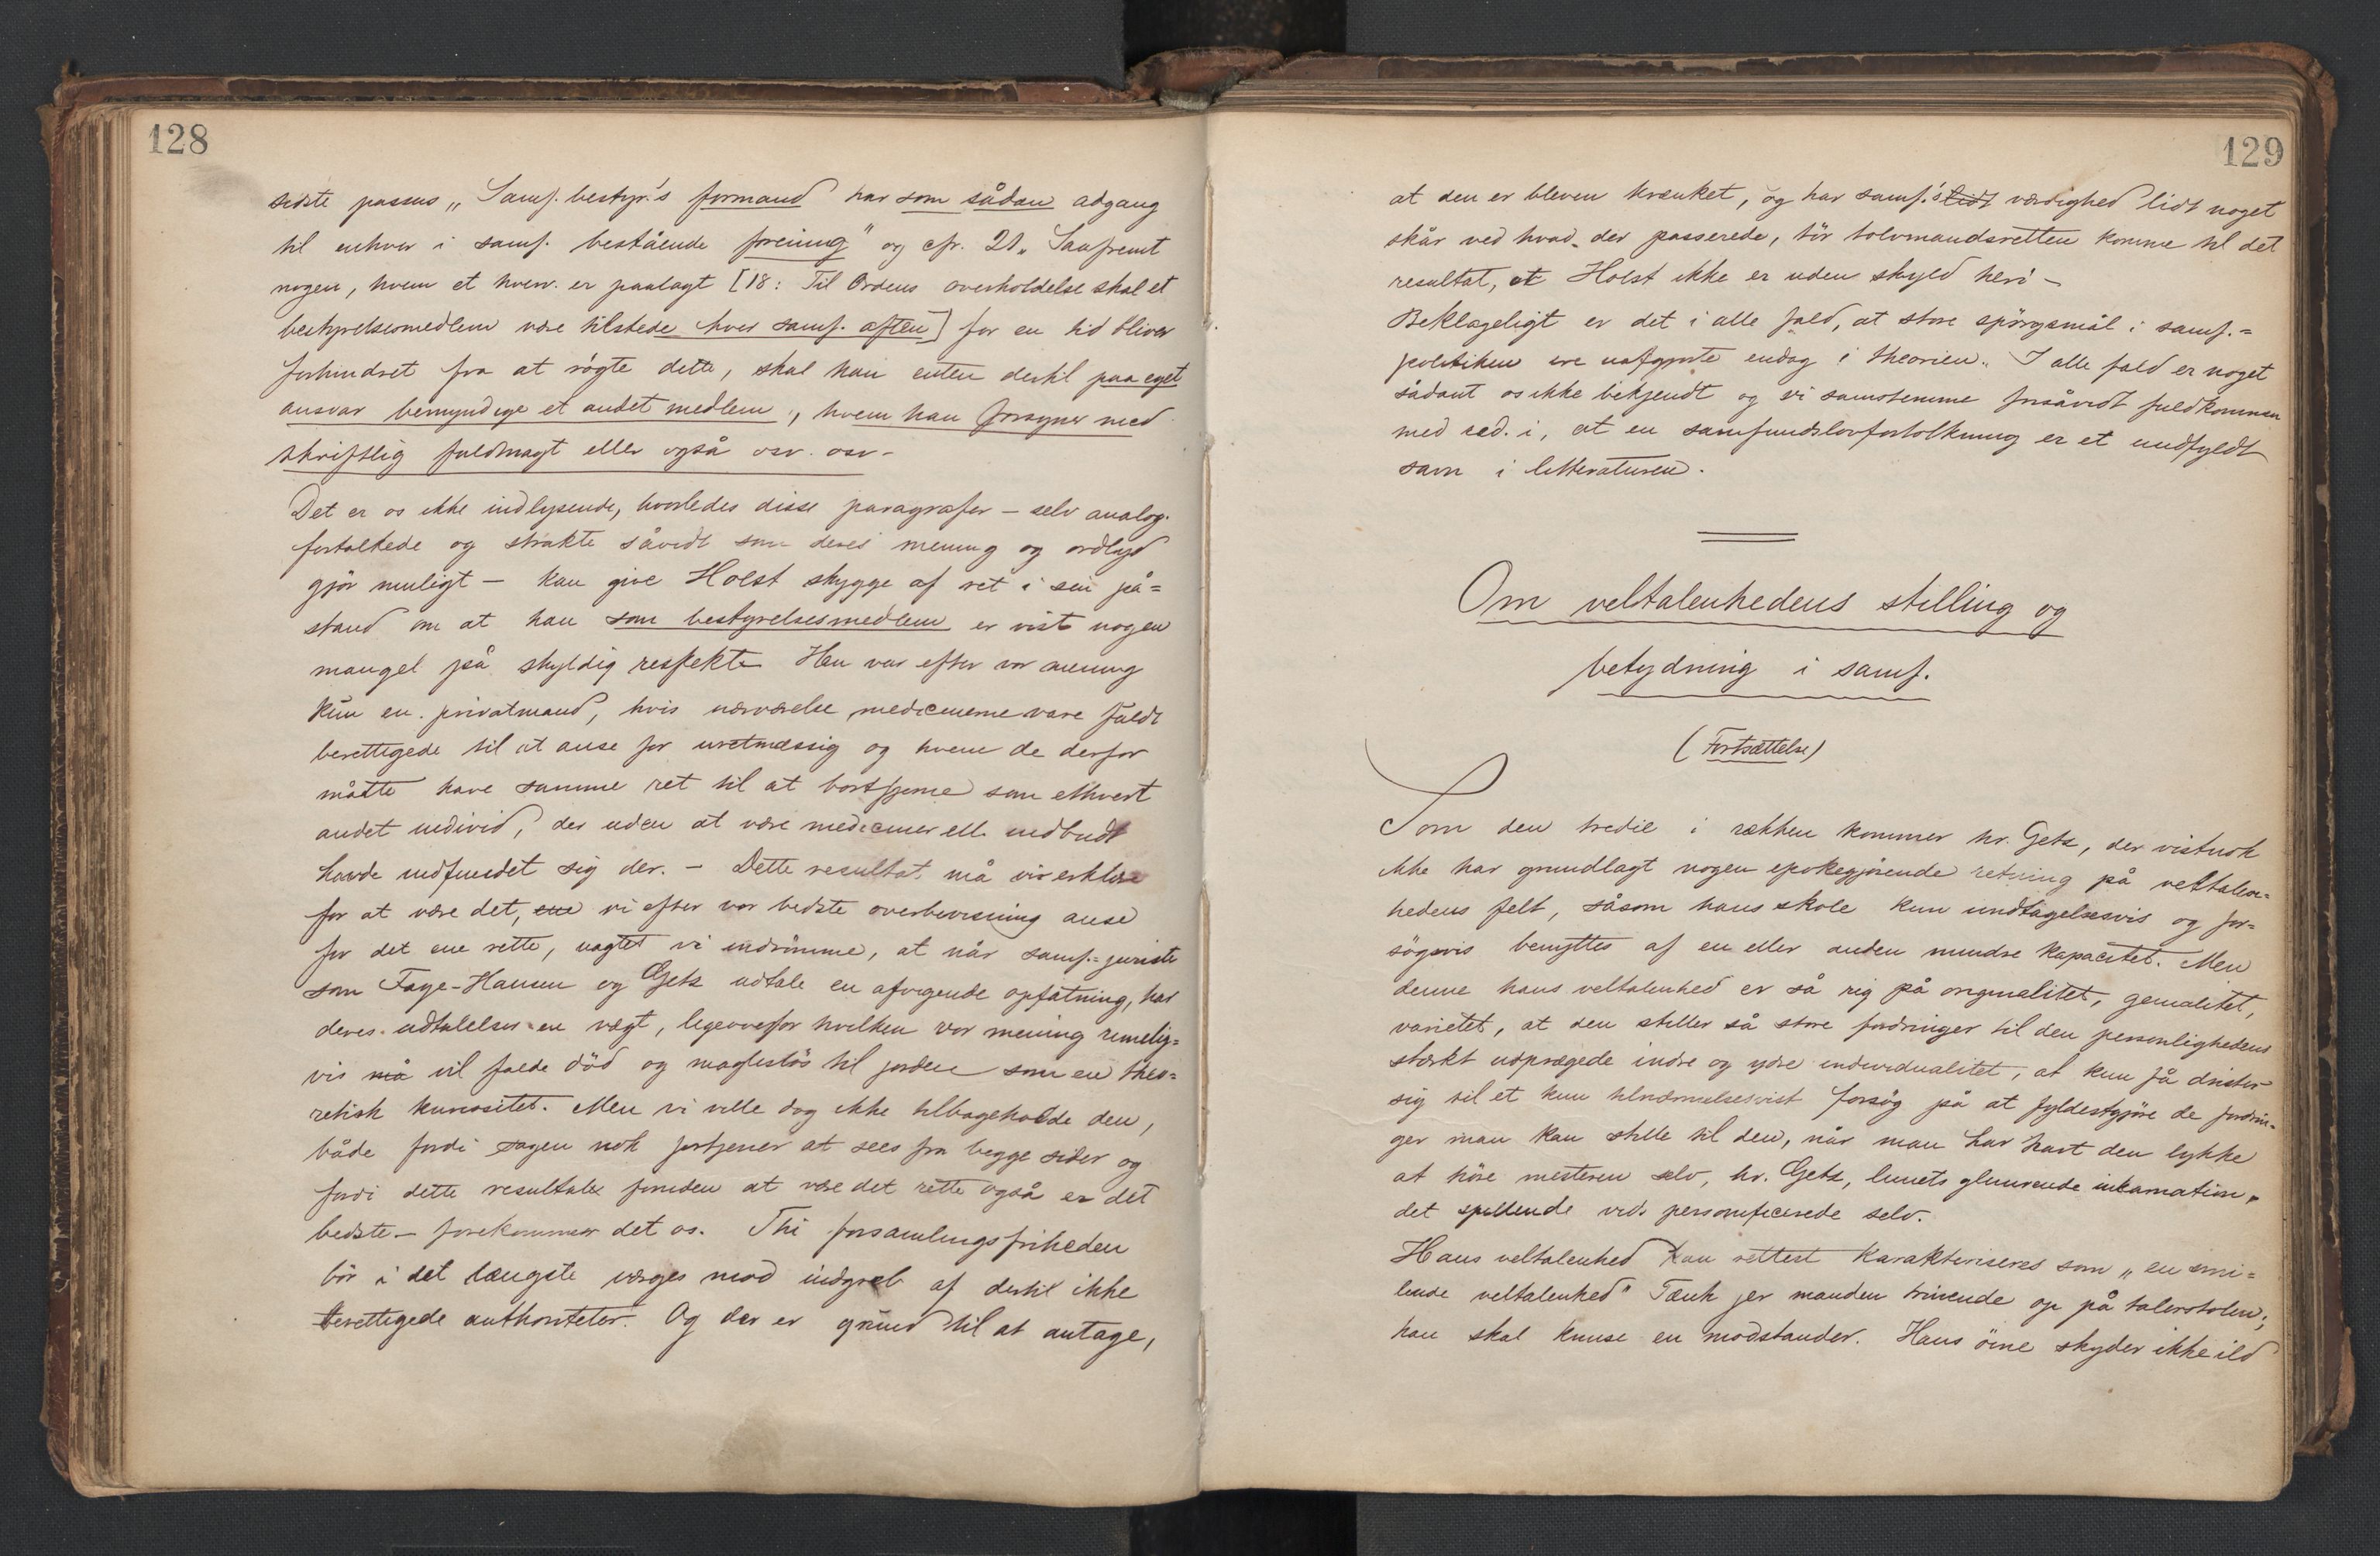 128
sidste passus „Samf. bestyr.'s formand har som sådan adgang
til enhver i samf. bestående forening" og cfr. 21 „Saafremt
nogen, hvem et hverv er paalagt [18: Til Ordens overholdelse skal et
bestyrelsesmedlem være tilstede hver samf. aften] for en tid bliver
forhindret fra at røgte dette, skal han enten dertil paa eget
ansvar bemyndige et andet medlem, hvem han forsyner med
skriftlig fuldmagt eller også osv. osv–
Det er os ikke indlysende, hvorledes disse paragrafer – selv analog.
fortolkede og strakte såvidt som deres mening og ordlyd
gjör muligt – kan give Holst skygge af ret i sin på=
stand om at han som bestyrelsesmedlem er vist nogen
mangel på skyldig respekt. Han var efter vor mening
kun en privatmand, hvis nærværelse medicinerne vare fuldt
berettigede til at anse for uretmæssig og hvem de derfor
måtte have samme ret til at bortfjerne som ethvert
andet individ, der uden at være mediciner ell. indbudt
havde indfundet sig der. – Dette resultat må vi erklære
for at være det, vi efter vor bedste overbevisning anse
for det ene rette, uagtet vi indrömme, at når samf.=jurister
som Faye-Hansen og Getz udtale en afvigende opfatning, har
deres udtalelser en vægt, ligeoverfor hvilken vor mening rimelig=
vis må vil falde död og magteslös til jorden som en theo=
retisk kuriositet. Men vi ville dog ikke tilbageholde den,
både fordi sagen nok fortjener at sees fra begge sider og
fordi dette resultat foruden at være det rette også er det
bedste – forekommer det os. Thi forsamlingsfriheden
bör i det længste værges mod indgreb af dertil ikke
berettigede authoriteter. Og der er grund til at antage,
129
at den er bleven krænket, og har samf.'s lidt værdighed lidt noget
skår ved hvad der passerede, tör tolvmandsretten komme til det
resultat, at Holst ikke er uden skyld heri –
Beklageligt er det i alle fald, at store spörgsmål i samf.=
politiken ere uafgjorte endog i theorien. I alle fald er noget
sådant os ikke bekjendt og vi samstemme forsåvidt fuldkommen
med red. i, at en samfundslovfortolkning er et uudfyldt
savn i litteraturen.
Om veltalenhedens stilling og
betydning i samf.
(Fortsættelse)
Som den tredie i rækken kommer hr. Getz, der vistnok
ikke har grundlagt nogen epokegjörende retning på veltalen=
hedens felt, såsom hans skole kun undtagelsesvis og for=
sögsvis benyttes af en eller anden mindre kapacitet. Men
denne hans veltalenhed er så rig på originalitet, genialitet,
varietet, at den stiller så store fordringer til den personlighedens
stærkt udprægede indre og ydre individualitet, at kun få drister
sig til et kun tilnærmelsesvist forsög på at fyldestgjöre de fordrin=
ger man kan stille til den, når man har havt den lykke
at höre mesteren selv, hr. Getz, lunets glimrende inkarnation,
det spillende vids personificerede selv.
Hans veltalenhed kan rettest karakteriseres som „en smi=
lende veltalenhed" Tænk jer manden trinende op på talerstolen;
han skal knuse en modstander. Hans öine skyder ikke ild